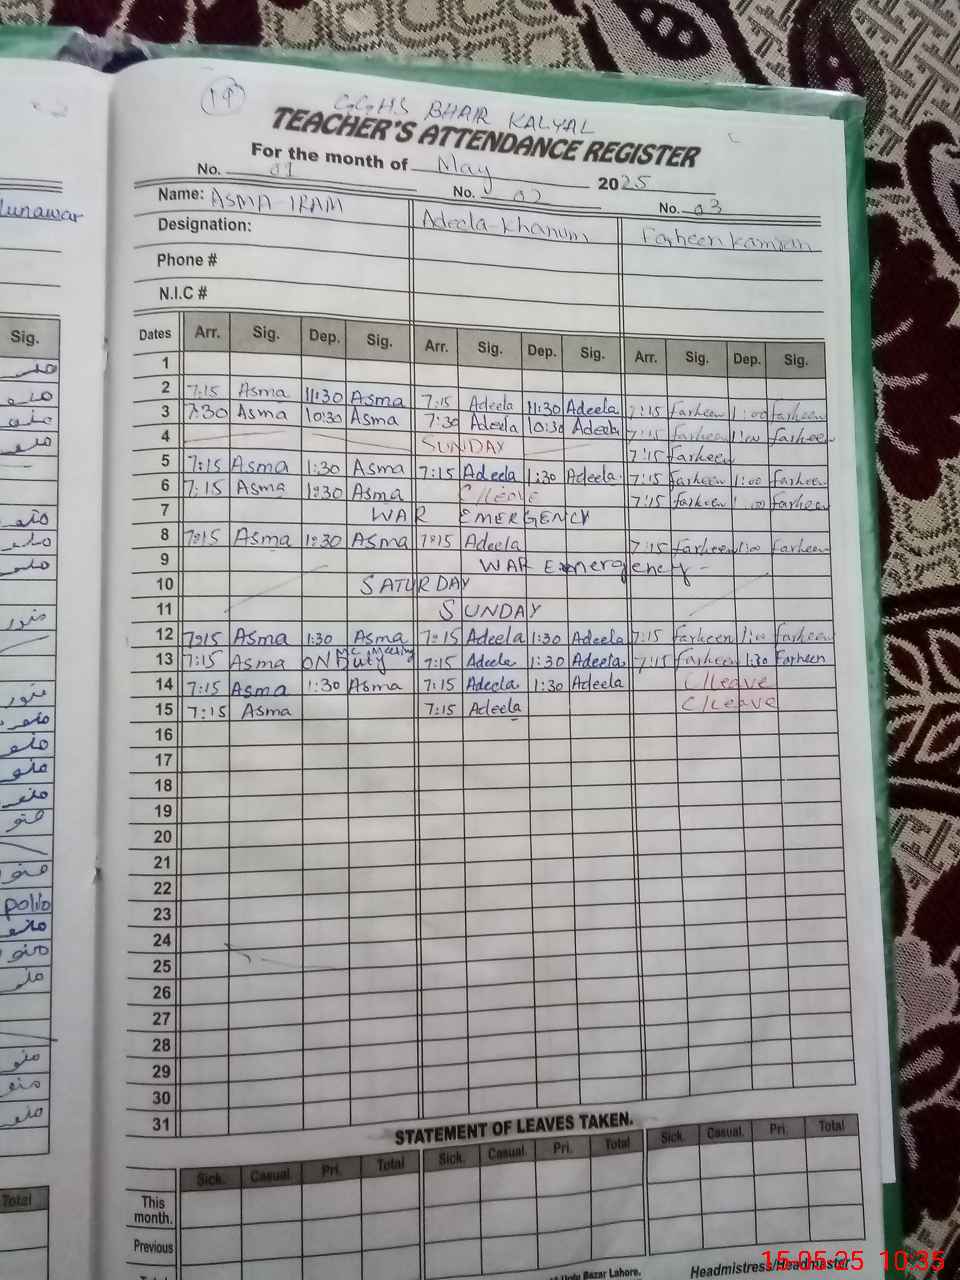 19
GGHS BHAIR KALYAL
TEACHER'S ATTENDANCE REGISTER
For the month of May 2025
No. 01 No. 02 No. 03
Name: ASMA-IRAM Adeela-Khanum Farheen Kamran
Designation:
Phone #
N.I.C #
Dates Arr. Sig. Dep. Sig. Arr. Sig. Dep. Sig. Arr. Sig. Dep. Sig.
1
2 7:15 Asma 11:30 Asma 7:15 Adeela 11:30 Adeela 7:15 Farheen 1:00 Farheen
3 7:30 Asma 10:30 Asma 7:30 Adeela 10:30 Adeela 7:15 Farheen 1:00 Farheen
4 SUNDAY 7:15 Farheen
5 7:15 Asma 1:30 Asma 7:15 Adeela 1:30 Adeela 7:15 Farheen 1:00 Farheen
6 7:15 Asma 1:30 Asma C/leave 7:15 Farheen 1:00 Farheen
7 WAR EMERGENCY
8 7:15 Asma 1:30 Asma 7:15 Adeela 7:15 Farheen 1:00 Farheen
9 WAR Emergency -
10 SATURDAY
11 SUNDAY
12 7:15 Asma 1:30 Asma 7:15 Adeela 1:30 Adeela 7:15 Farheen 1:00 Farheen
13 7:15 Asma ON Duty Meeting 7:15 Adeela 1:30 Adeela 7:15 Farheen 1:30 Farheen
14 7:15 Asma 1:30 Asma 7:15 Adeela 1:30 Adeela C/leave
15 7:15 Asma 7:15 Adeela C/leave
16
17
18
19
20
21
22
23
24
25
26
27
28
29
30
31
STATEMENT OF LEAVES TAKEN.
Sick. Casual. Pri. Total Sick. Casual. Pri. Total Sick. Casual. Pri. Total
This month.
Previous
Urdu Bazar Lahore.
Headmistress/Headmaster
Munawar
Sig.
polio
Total
15.05.25 10:35